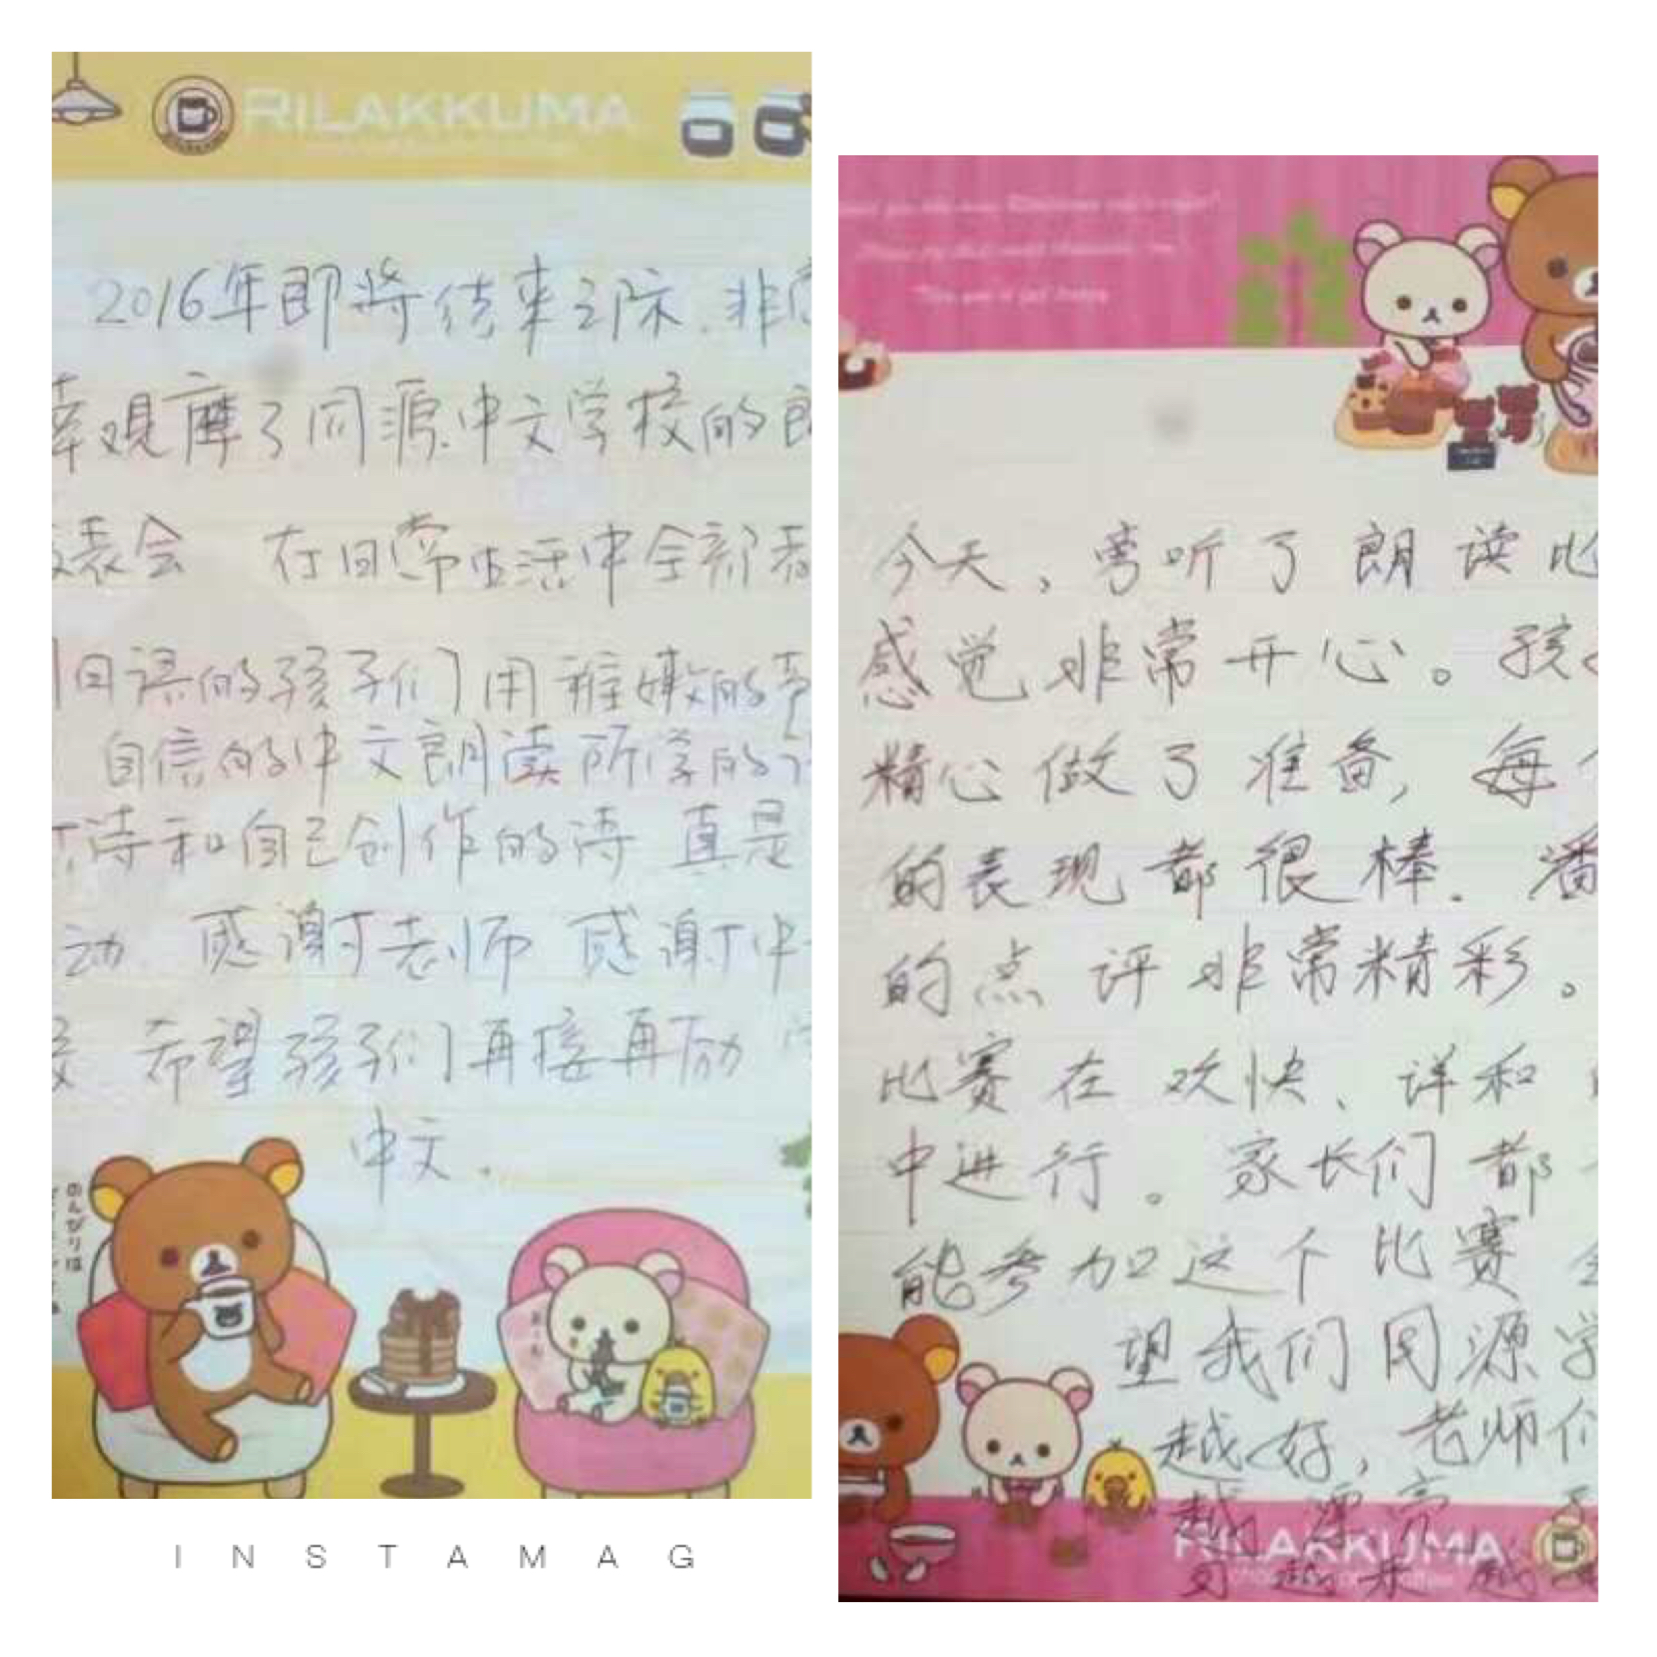 RILAKKUMA
2016年即将结束之际.非
幸观摩了同源中文学校的
表会 在日常生活中全部
日语的孩子们用稚嫩的
自信的中文朗读所学的
诗和自己创作的诗 真是
动 感谢老师 感谢中
校 希望孩子们再接再励
中文.
のんびりは
INSTAMAG
今天，旁听了朗读比
感觉非常开心。孩
精心做了准备，每
的表现都很棒. 潘
的点评非常精彩。
比赛在欢快、详和
中进行。家长们都
能参加这个比赛
望我们同源学
越好，老师们
越漂亮
RILAKKUMA
越来越